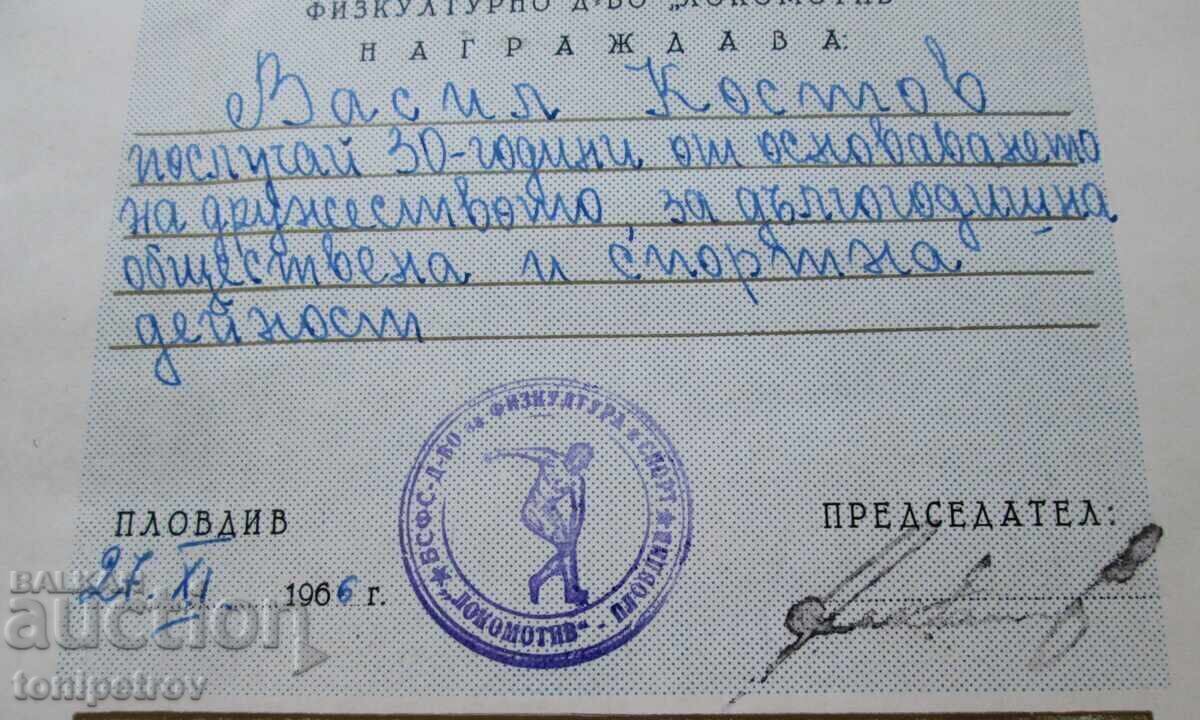 ФИЗКУЛТУРНО Д-ВО „ЛОКОМОТИВ“
НАГРАЖДАВА:
Васил Костов
послучай 30-години от основаването
на дружеството за дългогодишна
обществена и спортна
дейност
БСФС-Д-ВО за ФИЗКУЛТУРА и СПОРТ
„ЛОКОМОТИВ“ - ПЛОВДИВ
ПЛОВДИВ
ПРЕДСЕДАТЕЛ:
27. XI. 1966 г.
BALKAN
auction
tonipetrov